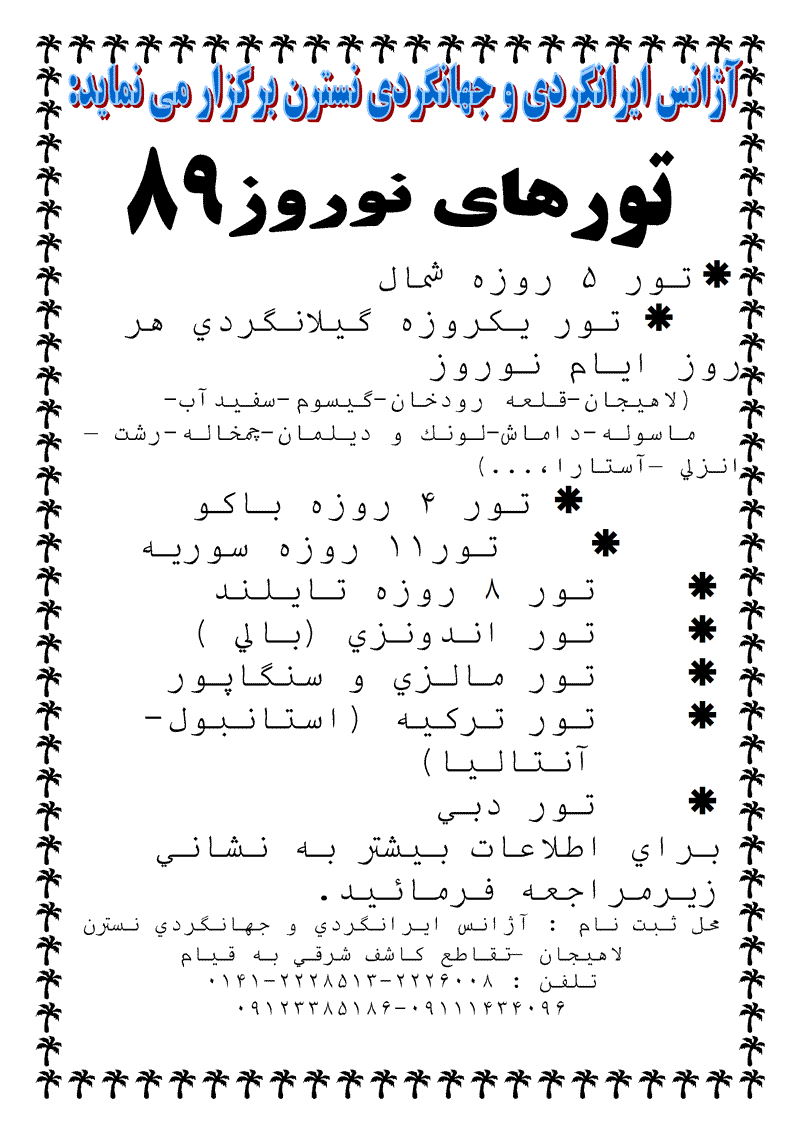 آژانس ایرانگردی و جهانگردی نسترن برگزار می نماید:
تورهای نوروز۸۹
تور ۵ روزه شمال
تور يكروزه گيلانگردي هر
روز ايام نوروز
(لاهيجان-قلعه رودخان-گيسوم-سفيدآب-
ماسوله-داماش-لونك و ديلمان-چمخاله-رشت –
انزلي –آستارا،...)
تور ۴ روزه باكو
تور۱۱ روزه سوريه
تور ۸ روزه تايلند
تور اندونزي (بالي )
تور مالزي و سنگاپور
تور تركيه (استانبول-
آنتاليا)
تور دبي
براي اطلاعات بيشتر به نشاني
زيرمراجعه فرمائيد.
محل ثبت نام : آژانس ايرانگردي و جهانگردي نسترن
لاهيجان –تقاطع كاشف شرقي به قيام
تلفن : ۲۲۲۶۰۰۸-۲۲۲۸۵۱۳-۰۱۴۱
۰۹۱۱۱۴۳۴۰۹۶-۰۹۱۲۳۳۸۵۱۸۶